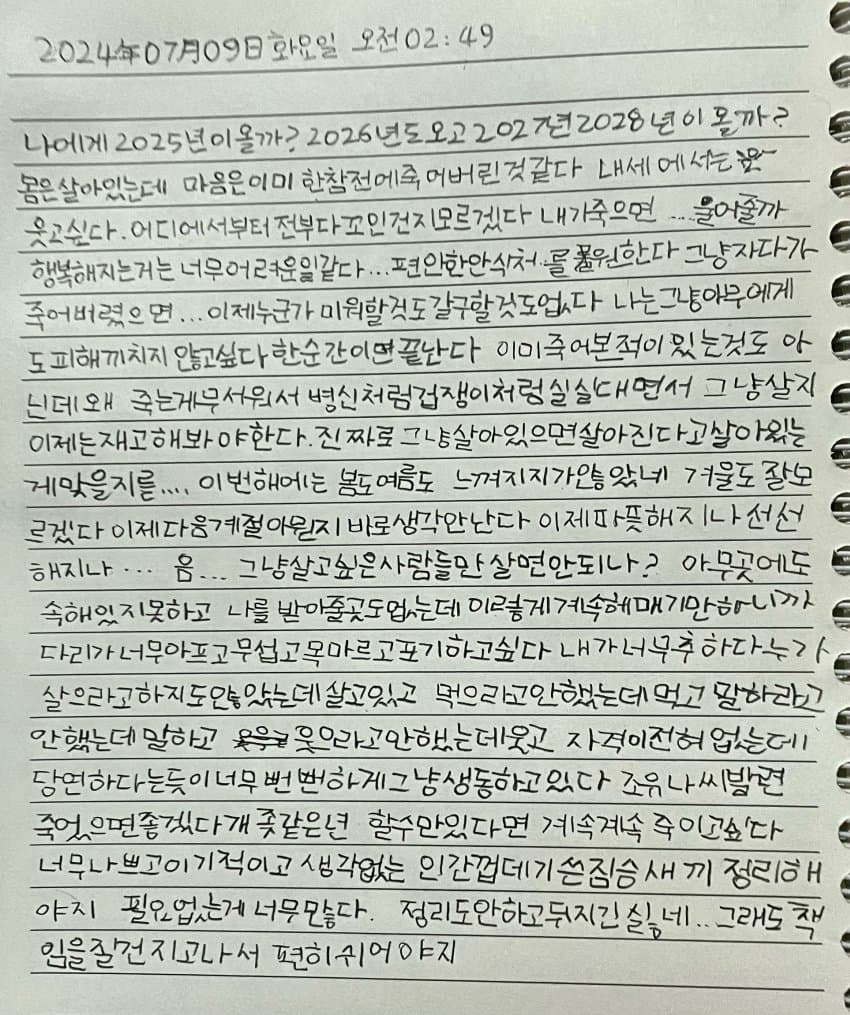 2024年07月09日화요일 오전02:49
나에게2025년이올까? 2026년도오고2027년2028년이 올까?
몸은살아있는데 마음은이미 한참전에죽어버린것같다 내세에서는
웃고싶다. 어디에서부터전부다꼬인건지모르겠다 내가죽으면 ... 울어줄까
행복해지는거는 너무어려운일같다... 편안한안식처를 원한다 그냥자다가
죽어버렸으면... 이제누군가 미워할것도갈구할것도없다 나는그냥아무에게
도피해끼치지 않고싶다 한순간이면끝난다 이미죽어본적이 있는것도 아
닌데왜 죽는게무서워서 병신처럼겁쟁이처럼실실대면서 그냥살지
이제는재고해봐야한다. 진짜로그냥살아있으면살아진다고살아있는
게맞을지를.... 이번해에는 봄도여름도 느껴지지가않았네 겨울도 잘모
르겠다 이제다음계절이뭔지 바로생각안난다 이제따뜻해지나 선선
해지나 ... 음... 그냥살고싶은사람들만 살면안되나? 아무곳에도
속해있지못하고 나를 받아줄곳도없는데이렇게계속헤매기만하니까
다리가너무아프고무섭고목마르고포기하고싶다 내가너무추하다누가
살으라고하지도않았는데살고있고 먹으라고안했는데먹고 말하라고
안했는데 말하고 웃으라고안했는데웃고 자격이전혀없는데
당연하다는듯이너무뻔뻔하게그냥생동하고있다 조유나씨발련
죽었으면좋겠다개좆같은년 할수만있다면 계속계속 죽이고싶다
너무나쁘고이기적이고 생각없는 인간껍데기쓴짐승새끼 정리해
야지 필요없는게너무많다. 정리도안하고뒤지긴싫네.. 그래도 책
임을질건지고나서 편히쉬어야지